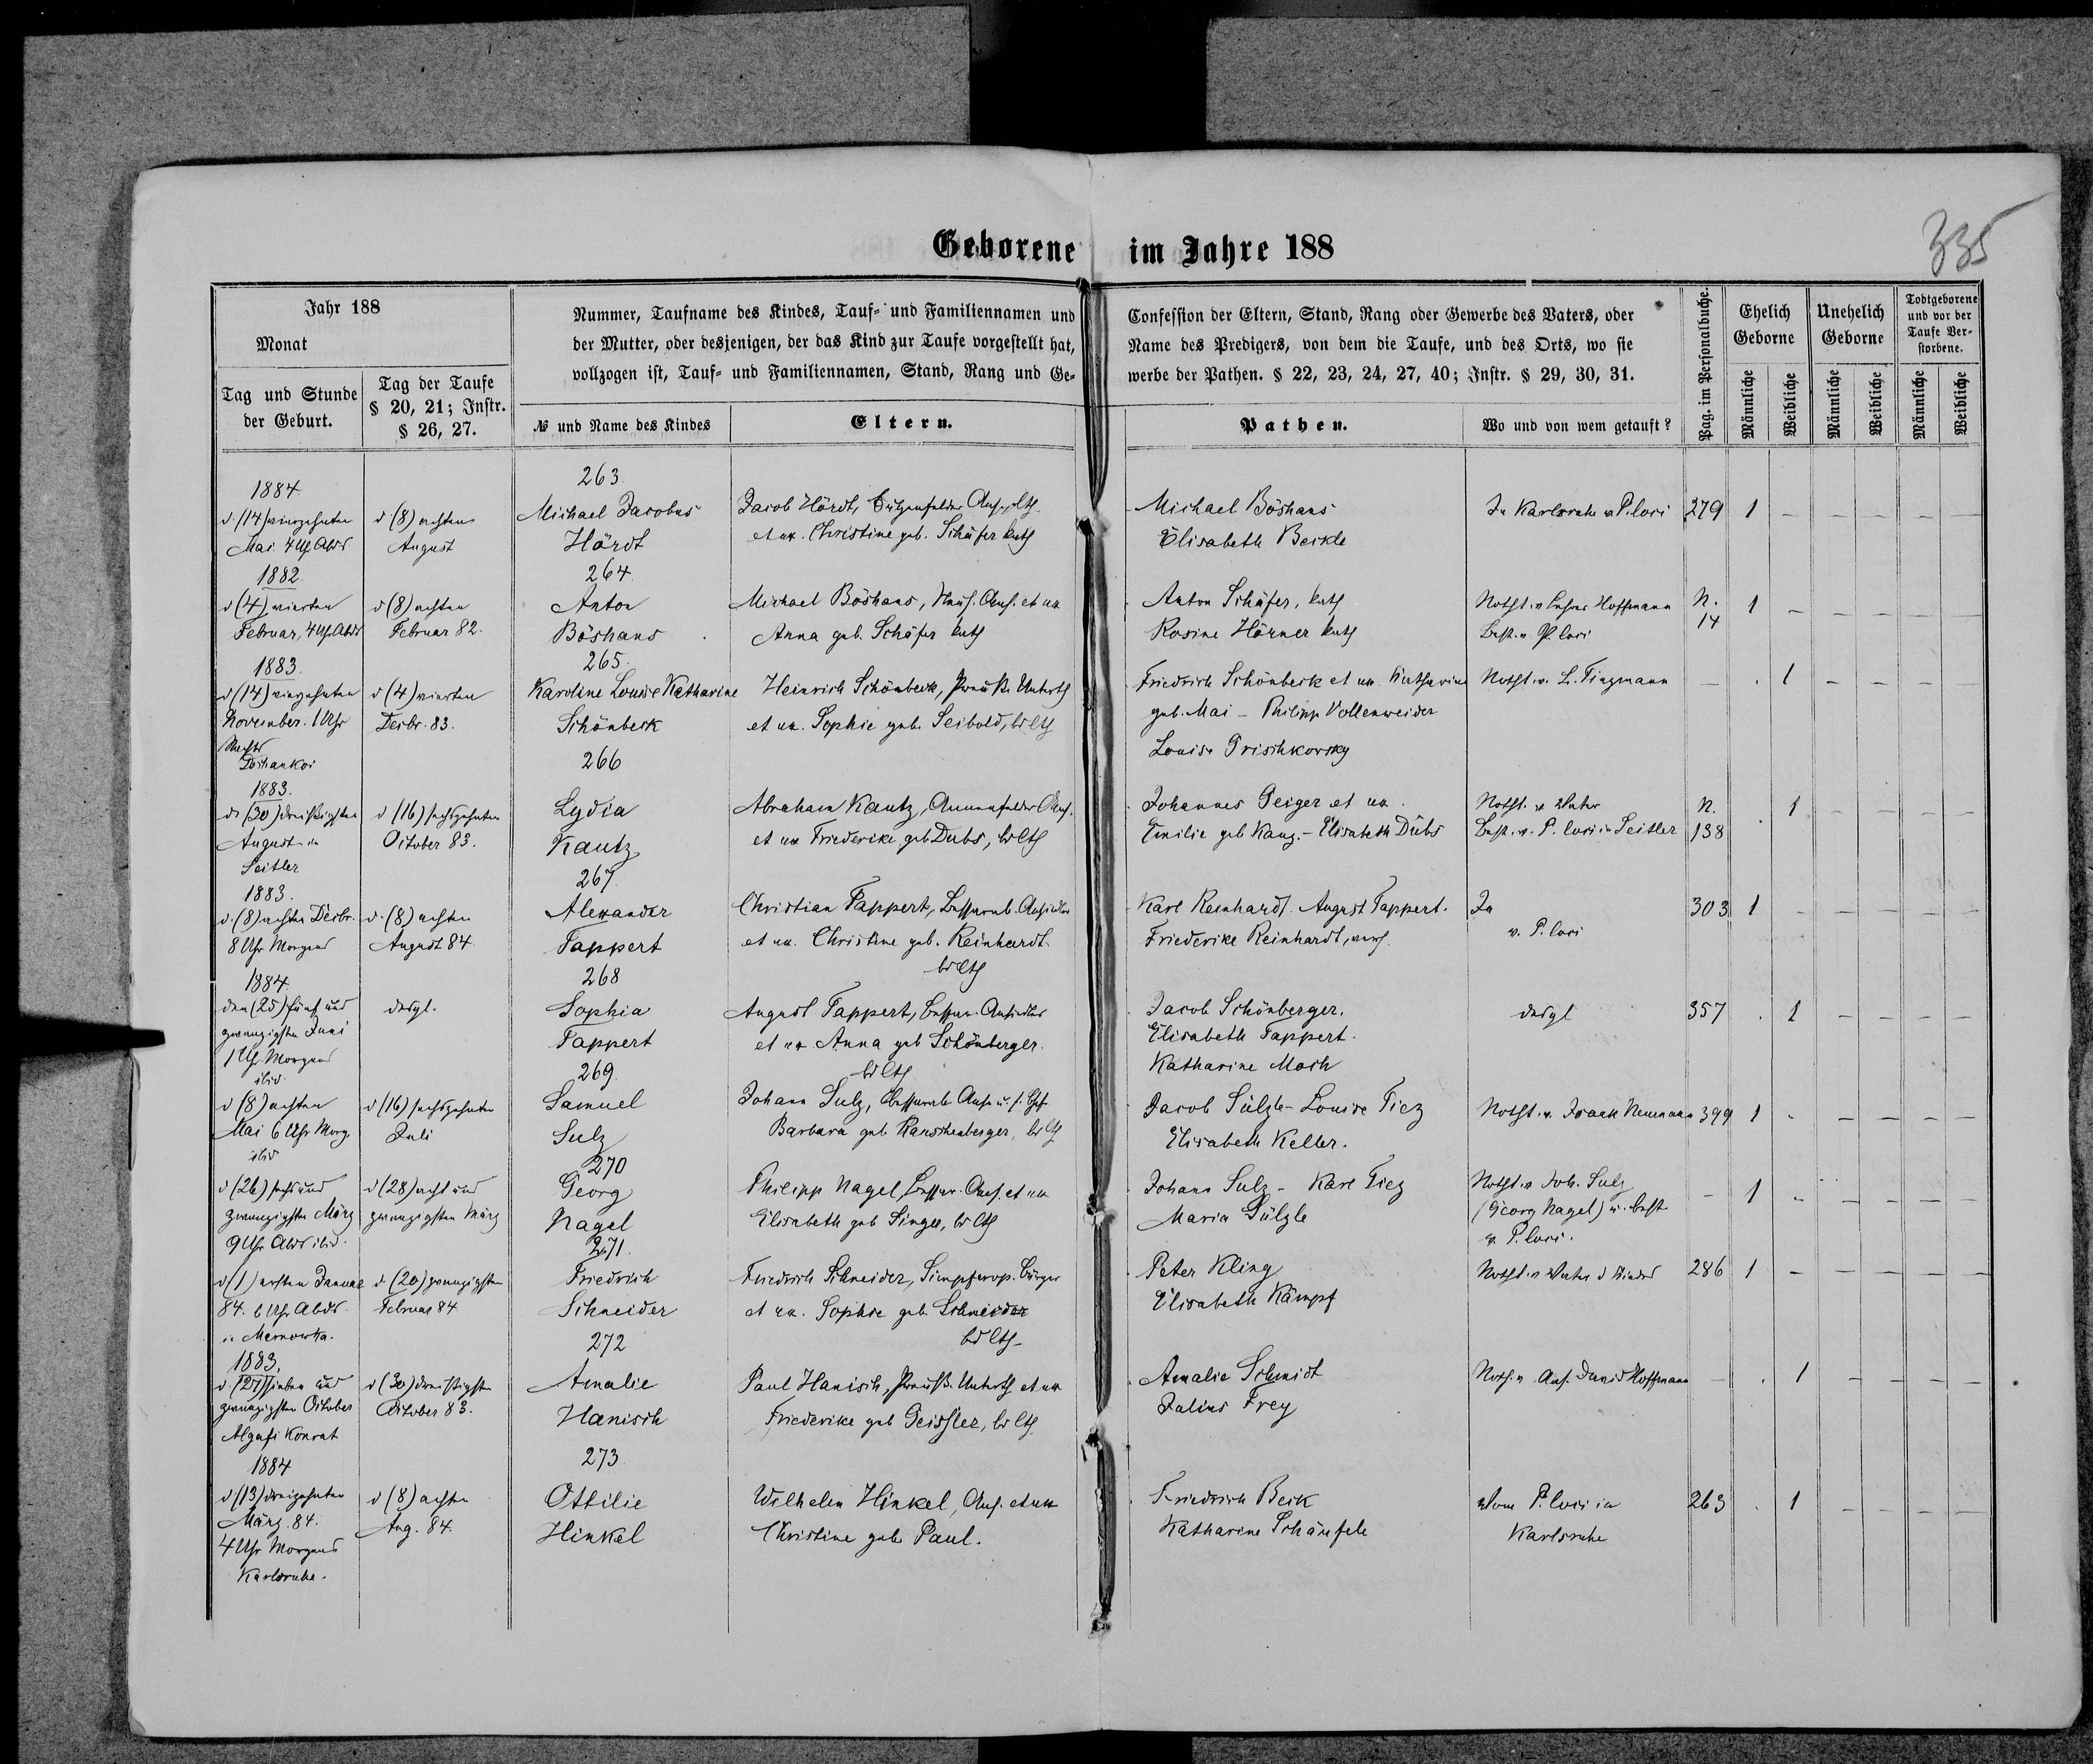 Geborene im Jahre 188
335
Jahr 188
Monat
Tag und Stunde
der Geburt.
Tag der Taufe
§ 20, 21; Instr.
§ 26, 27.
Nummer, Taufname des Kindes, Tauf- und Familiennamen und
der Mutter, oder desjenigen, der das Kind zur Taufe vorgestellt hat,
vollzogen ist, Tauf- und Familiennamen, Stand, Rang und Ge-
№ und Name des Kindes
Eltern.
Confession der Eltern, Stand, Rang oder Gewerbe des Vaters, oder
Name des Predigers, von dem die Taufe, und des Orts, wo sie
werbe der Pathen. § 22, 23, 24, 27, 40; Instr. § 29, 30, 31.
Pathen.
Wo und von wem getauft?
Pag. im Personalbuche.
Ehelich
Geborne
Unehelich
Geborne
Todtgeborene
und vor der
Taufe Ver-
storbene.
Männliche
Weibliche
Männliche
Weibliche
Männliche
Weibliche
1884
d. (14) vierzehnten
Mai 4 Uhr Abds
d (8) achten
August
263
Michael Jacobus
Hördt
Jacob Hördt, Ans.
et ux. Christine geb. Schäfer kath
Michael Böshans
Elisabeth Beikle
In Karlsruhe v P. Lori
279 1 – – – – –
1882
d (4) vierten
Februar, 4 Uhr Abds
d (8) achten
Februar 82.
264
Anton
Böshans
Michael Böshans, Ans. et ux
Anna geb. Schäfer kath
Anton Schäfer, kath
Rosine Hörner kath
Notht. v Lehrer Hoffmann
Best. v. P. Lori
N.
14
1 – – – – –
1883.
d (14) vierzehnten
November. 1 Uhr
Nachts
Dshankoi
d (4) vierten
Decbr. 83.
265.
Karoline Louise Katharine
Schönbeck
Heinrich Schönbeck, Preuß. Unterth
et ux. Sophie geb. Seibold, bd lth
Friedrich Schönbeck et ux. Katharina
geb. Mai – Philipp Vollenweider
Louise Grischkovsky
Notht. v. L. Tingmann
– . 1 – – – –
1883.
d. (30) dreißigsten
August in
Seitler
d (16) sechszehnten
October 83.
266
Lydia
Kautz
Abraham Kautz, Ans.
et ux Friederike geb Dubs, bd lth
Johannes Geiger et ux.
Emilie geb Kauz. – Elisabeth Dubs
Notht. v Vater
Best. v. P. Lori in Seitler
N.
138
. 1 – – – –
1883.
d. (8) achten Decbr.
8 Uhr Morgens
d. (8) achten
August 84
267
Alexander
Tappert
Christian Tappert, Bessarab. Ansiedler
et ux. Christine geb. Reinhardt.
bd lth
Karl Reinhardt. August Tappert.
Friederike Reinhardt,
In
v. P. Lori
303 1 – – – – –
1884.
den (25) fünf und
zwanzigsten Juni
1 Uhr Morgens
ibid.
desgl.
268
Sophia
Tappert
August Tappert, Bessar. Ansiedler
et ux Anna geb Schönberger.
bd lth
Jacob Schönberger.
Elisabeth Tappert.
Katharine Moch
desgl
357 . 1 – – – –
d (8) achten
Mai 6 Uhr Morg.
ibid
d (16) sechszehnten
Juli
269
Samuel
Sulz
Johann Sulz, Bessarab Ans.
Barbara geb Rauschenberger, bd lth
Jacob Sülzle – Louise Tiez
Elisabeth Keller.
Notht. v. Isaak Neumann
399 1 – – – – –
d (26) sechs und
zwanzigsten März
9 Uhr Abds ibid.
d (28) acht und
zwanzigsten März
270
Georg
Nagel
Philipp Nagel, Bessar. Ans. et ux
Elisabeth geb Singer, bd lth
Johann Sulz – Karl Tiez
Maria Sülzle
Notht. v Joh. Sulz
(Georg Nagel) u. Best
v. P. Lori.
– 1 – – – – –
d (1) ersten Januar
84. 6 Uhr Abds.
in Memowka.
d. (20) zwanzigsten
Februar 84
271.
Friedrich
Schneider
Friedrich Schneider, Simpferop. Bürger
et ux. Sophie geb. Schneider
bd lth
Peter Kling
Elisabeth Kämpf
Notht. v Vater d Kindes
286 1 – – – – –
1883.
d (27) sieben und
zwanzigsten October
Algasi Konrat
d (30) dreißigsten
October 83.
272
Amalie
Hanisch
Paul Hanisch, Preuß. Unterth et ux
Friederike geb Geissler, bd lth
Amalie Schmidt
Julius Frey
Noth. v. Ans. David Hoffmann
– . 1 – – – –
1884
d (13) dreizehnten
März. 84.
4 Uhr Morgens
Karlsruhe.
d (8) achten
Aug. 84.
273
Ottilie
Hinkel
Wilhelm Hinkel, Ans. et ux
Christine geb. Paul.
Friedrich Beik
Katharine Schäufele
Vom P. Lori in
Karlsruhe
263 . 1 – – – –